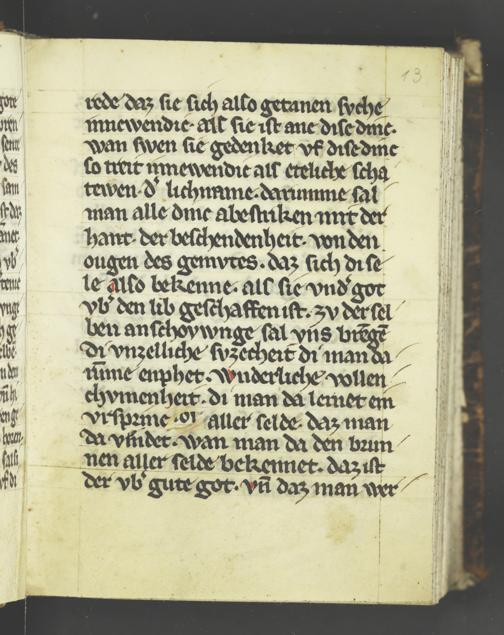 13
rede daz sie sich also getanen syehe
innewendic· als sie ist ane dise dinc·
wan swen sie gedenket vf dise dinc
so treit innewendic als eteliche scha
tewen· d' lichname· darumme sal
man alle dinc abestriken mit der
hant· der beschendenheit· von den
ougen des gemvtes· daz sich di se
le also bekenne· als sie vnd' got
vb' den lib geschaffen ist· zv der sel
ben anschoywnge sal vns brēgē
di vnzelliche svzecheit di man da
inne enphet· wnderliche vollen
chvmenheit· di man da lernet ein
vrspring aller selde· daz man
da vindet· wan man da den brun
nen aller selde bekennet· daz ist
der vb' gute got· vn̄ daz man wer